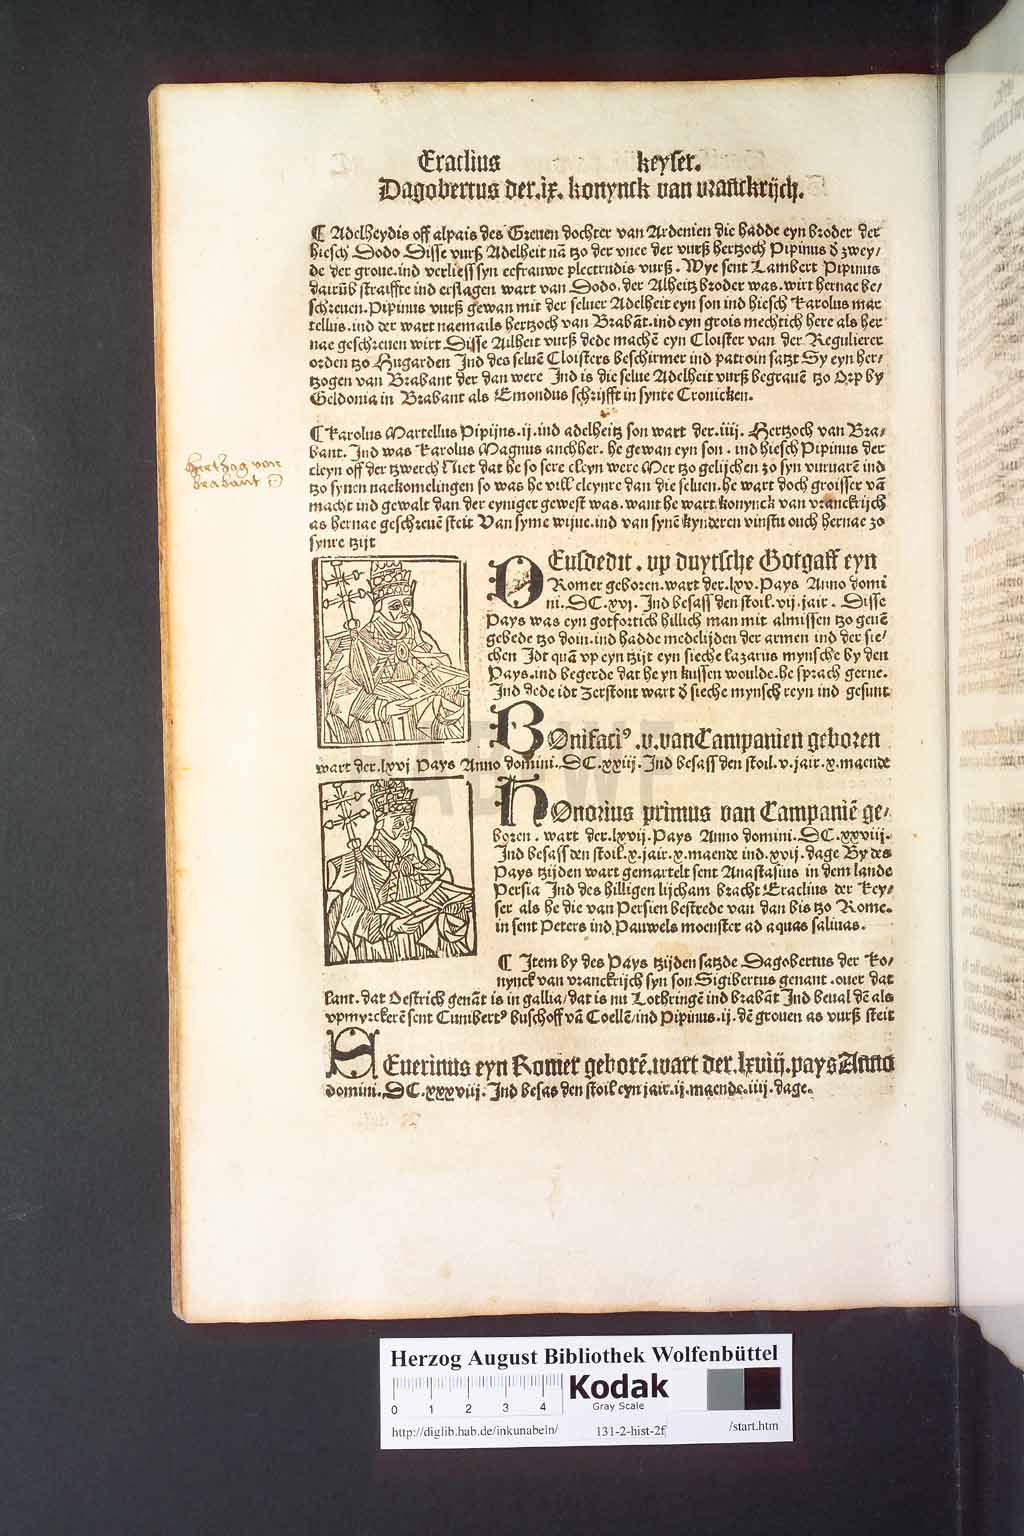 Eraclius keyser.
Dagobertus der.ix. konynck van vranckrijch.
¶ Adelheydis off alpais des Greuen dochter van Ardenien die hadde eyn broder der
hiesch Dodo Disse vurß Adelheit nā tzo der vnee der vurß hertzoch Pipinus d̕ zwey/
de der groue.ind verliess syn eefrauwe plectrudis vurß. Wye sent Lambert Pipinus
dairūb straiffte ind erslagen wart van Dodo.der Alheitz broder was.wirt hernae be/
schreuen.Pipinus vurß gewan mit der seluer Adelheit eyn son ind hiesch Karolus mar
tellus.ind der wart naemails hertzoch van Brabāt.ind eyn grois mechtich here als her
nae geschreuen wirt Disse Ailheit vurß dede machē eyn Cloister van der Regulierer
orden tzo Hugarden Ind des seluē Cloisters beschirmer ind patroin satzt Sy eyn her/
tzogen van Brabant der dan were Ind is die selue Adelheit vurß begrauē tzo Orp by
Geldonia in Brabant als Emondus schrijfft in synre Cronicken.
¶ Karolus Martellus Pipijns.ij.ind adelheitz son wart der.iiij. Hertzoch van Bra/
bant. Ind was Karolus Magnus anchher. he gewan eyn son. ind hiesch Pipinus der
cleyn off der tzwerch Niet dat he so sere cleyn were Mer tzo gelijchen zo syn vurvarē ind
tzo synen naekomelingen so was he vill cleynre dan die seluen.he wart doch groisser vā
macht ind gewalt dan der eyniger gewest was.want he wart konynck van vranckrijch
as hernae geschreuē steit Van syme wijue.ind van synē kynderen vinstu ouch hernae zo
synre tzijt
hertzog von
brabant
DEusdedit. vp duytsche Gotgaff eyn
Romer geboren.wart der.lxv.Pays Anno domi
ni.DC.xvj. Ind besass den stoil.vij.jair. Disse
Pays was eyn gotfortich hillich man mit almissen tzo geuē
gebede tzo doin.ind hadde medelijden der armen ind der sie/
chen Idt quā vp eyn tzijt eyn sieche lazarus mynsche by den
Pays.ind begerde dat he yn kussen woulde.he sprach gerne.
Ind dede idt zerstont wart d̕ sieche mynsch reyn ind gesunt
BOnifaciꝰ.v.van Campanien geboren
wart der.lxvj Pays Anno domini.DC.xxiij. Ind besass den stoil.v.jair.x.maende
HOnorius primus van Campaniē ge/
boren. wart der.lxvij.Pays Anno domini.DC.xxviij.
Ind besass den stoil.x.jair.x.maende ind.xvij.dage By des
Pays tzijden wart gemartelt sent Anastasius in dem lande
Persia Ind des hilligen lijcham bracht Eraclius der key/
ser als he die van Persien bestrede van dan bis tzo Rome.
in sent Peters ind Pauwels moenster ad aquas saluias.
¶ Item by des Pays tzijden satzde Dagobertus der ko/
nynck van vranckrijch syn son Sigibertus genant.ouer dat
lant.dat Oestrich genāt is in gallia/dat is nu Lothringē ind brabāt Ind beual dē als
vpmyrckerē sent Cumbertꝰ buschoff vā Coellē/ind Pipinus.ij.dē grouen as vurß steit
SEuerinus eyn Romer geborē.wart der.lxviij.pays Anno
domini.DC.xxxviij. Ind besas den stoil eyn jair.ij.maende.iiij.dage.
HAB WF
Herzog August Bibliothek Wolfenbüttel
0 1 2 3 4
Kodak
Gray Scale
http://diglib.hab.de/inkunabeln/ 131-2-hist-2f /start.htm